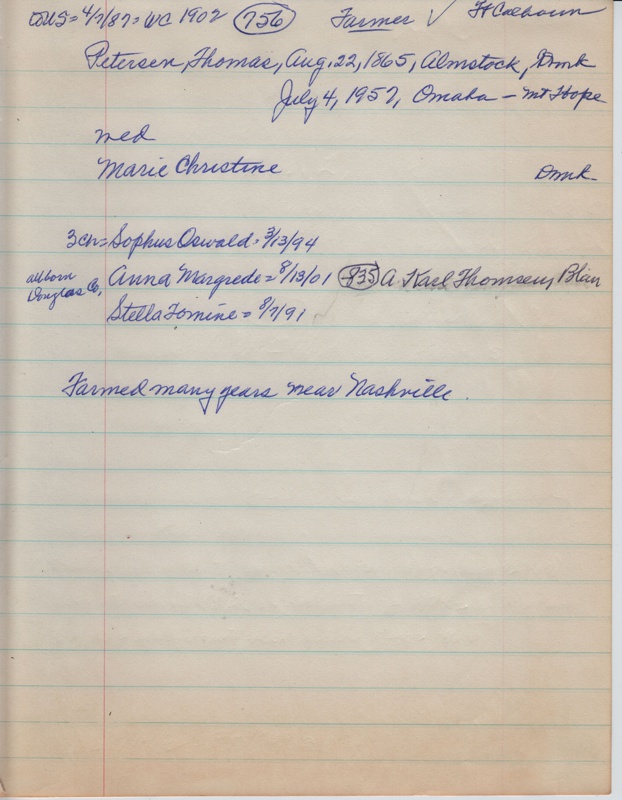 CUS = 4/7/87 = WC 1902 (756) Farmer ✓ Ft Calhoun
Petersen, Thomas, Aug. 22, 1865, Almstock, Dmk
July 4, 1957, Omaha - Mt Hope
wed
Marie Christine Dmk-
3 ch = Sophus Oswald = 3/13/94
all born Anna Margrede = 8/13/01 (835) A. Karl Thomsen, Blair
Douglas Co,
Stella Tomine = 8/7/91
Farmed many years near Nashville.